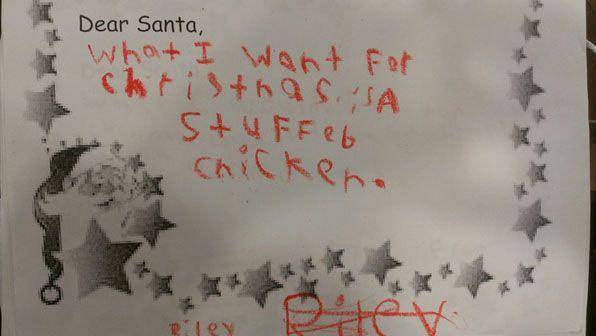 Dear Santa,
What I want for
christmas. is A
Stuffeb
chicken.
Riley Riley